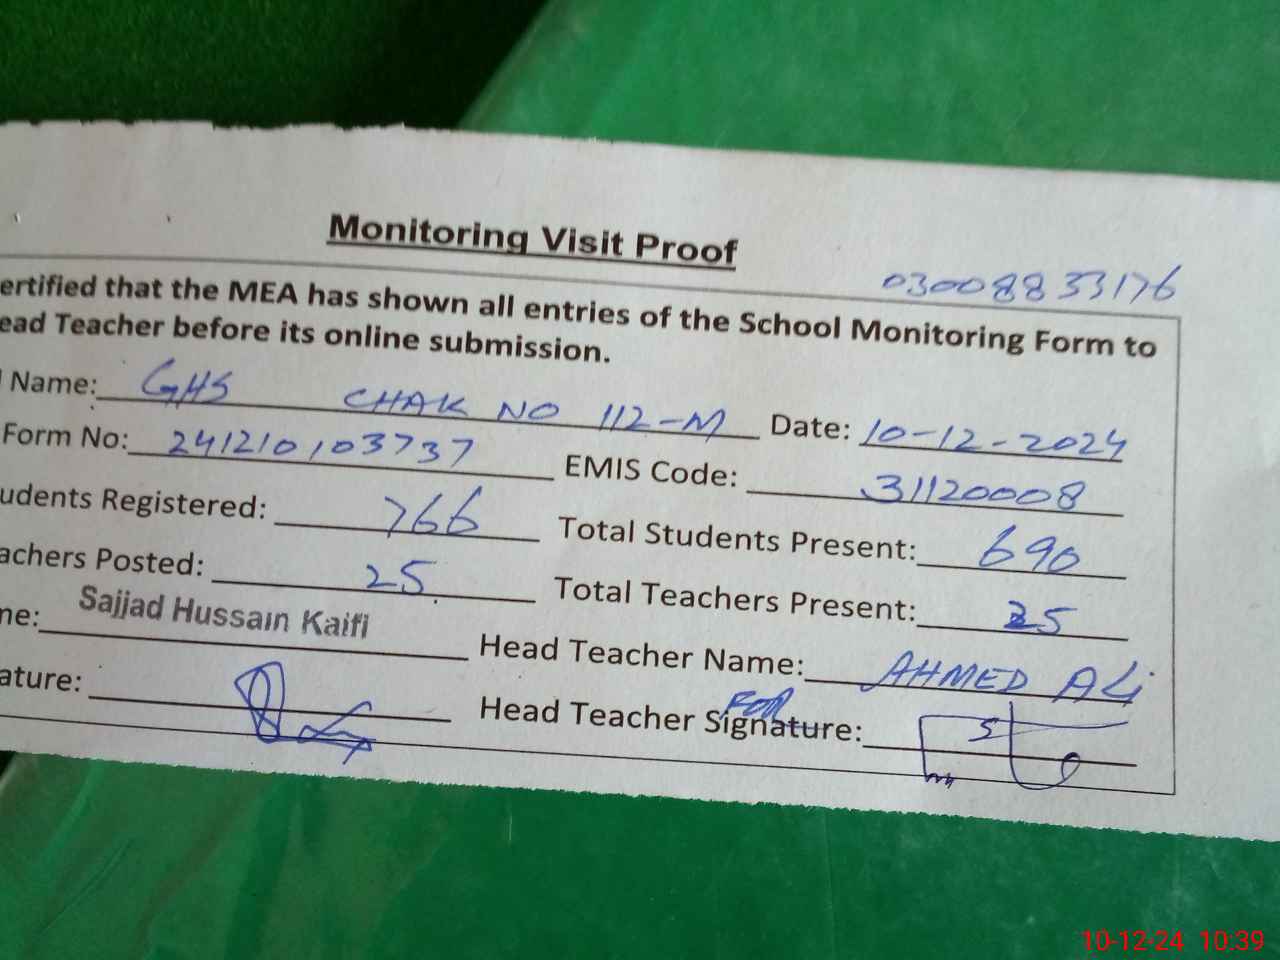 Monitoring Visit Proof
03008833176
ertified that the MEA has shown all entries of the School Monitoring Form to
ead Teacher before its online submission.
Name: GHS CHAK NO 112-M Date: 10-12-2024
Form No: 241210103737 EMIS Code: 31120008
udents Registered: 766 Total Students Present: 690
achers Posted: 25 Total Teachers Present: 25
me: Sajjad Hussain Kaifi Head Teacher Name: AHMED ALi
ature: Head Teacher Signature: FOR
10-12-24 10:39